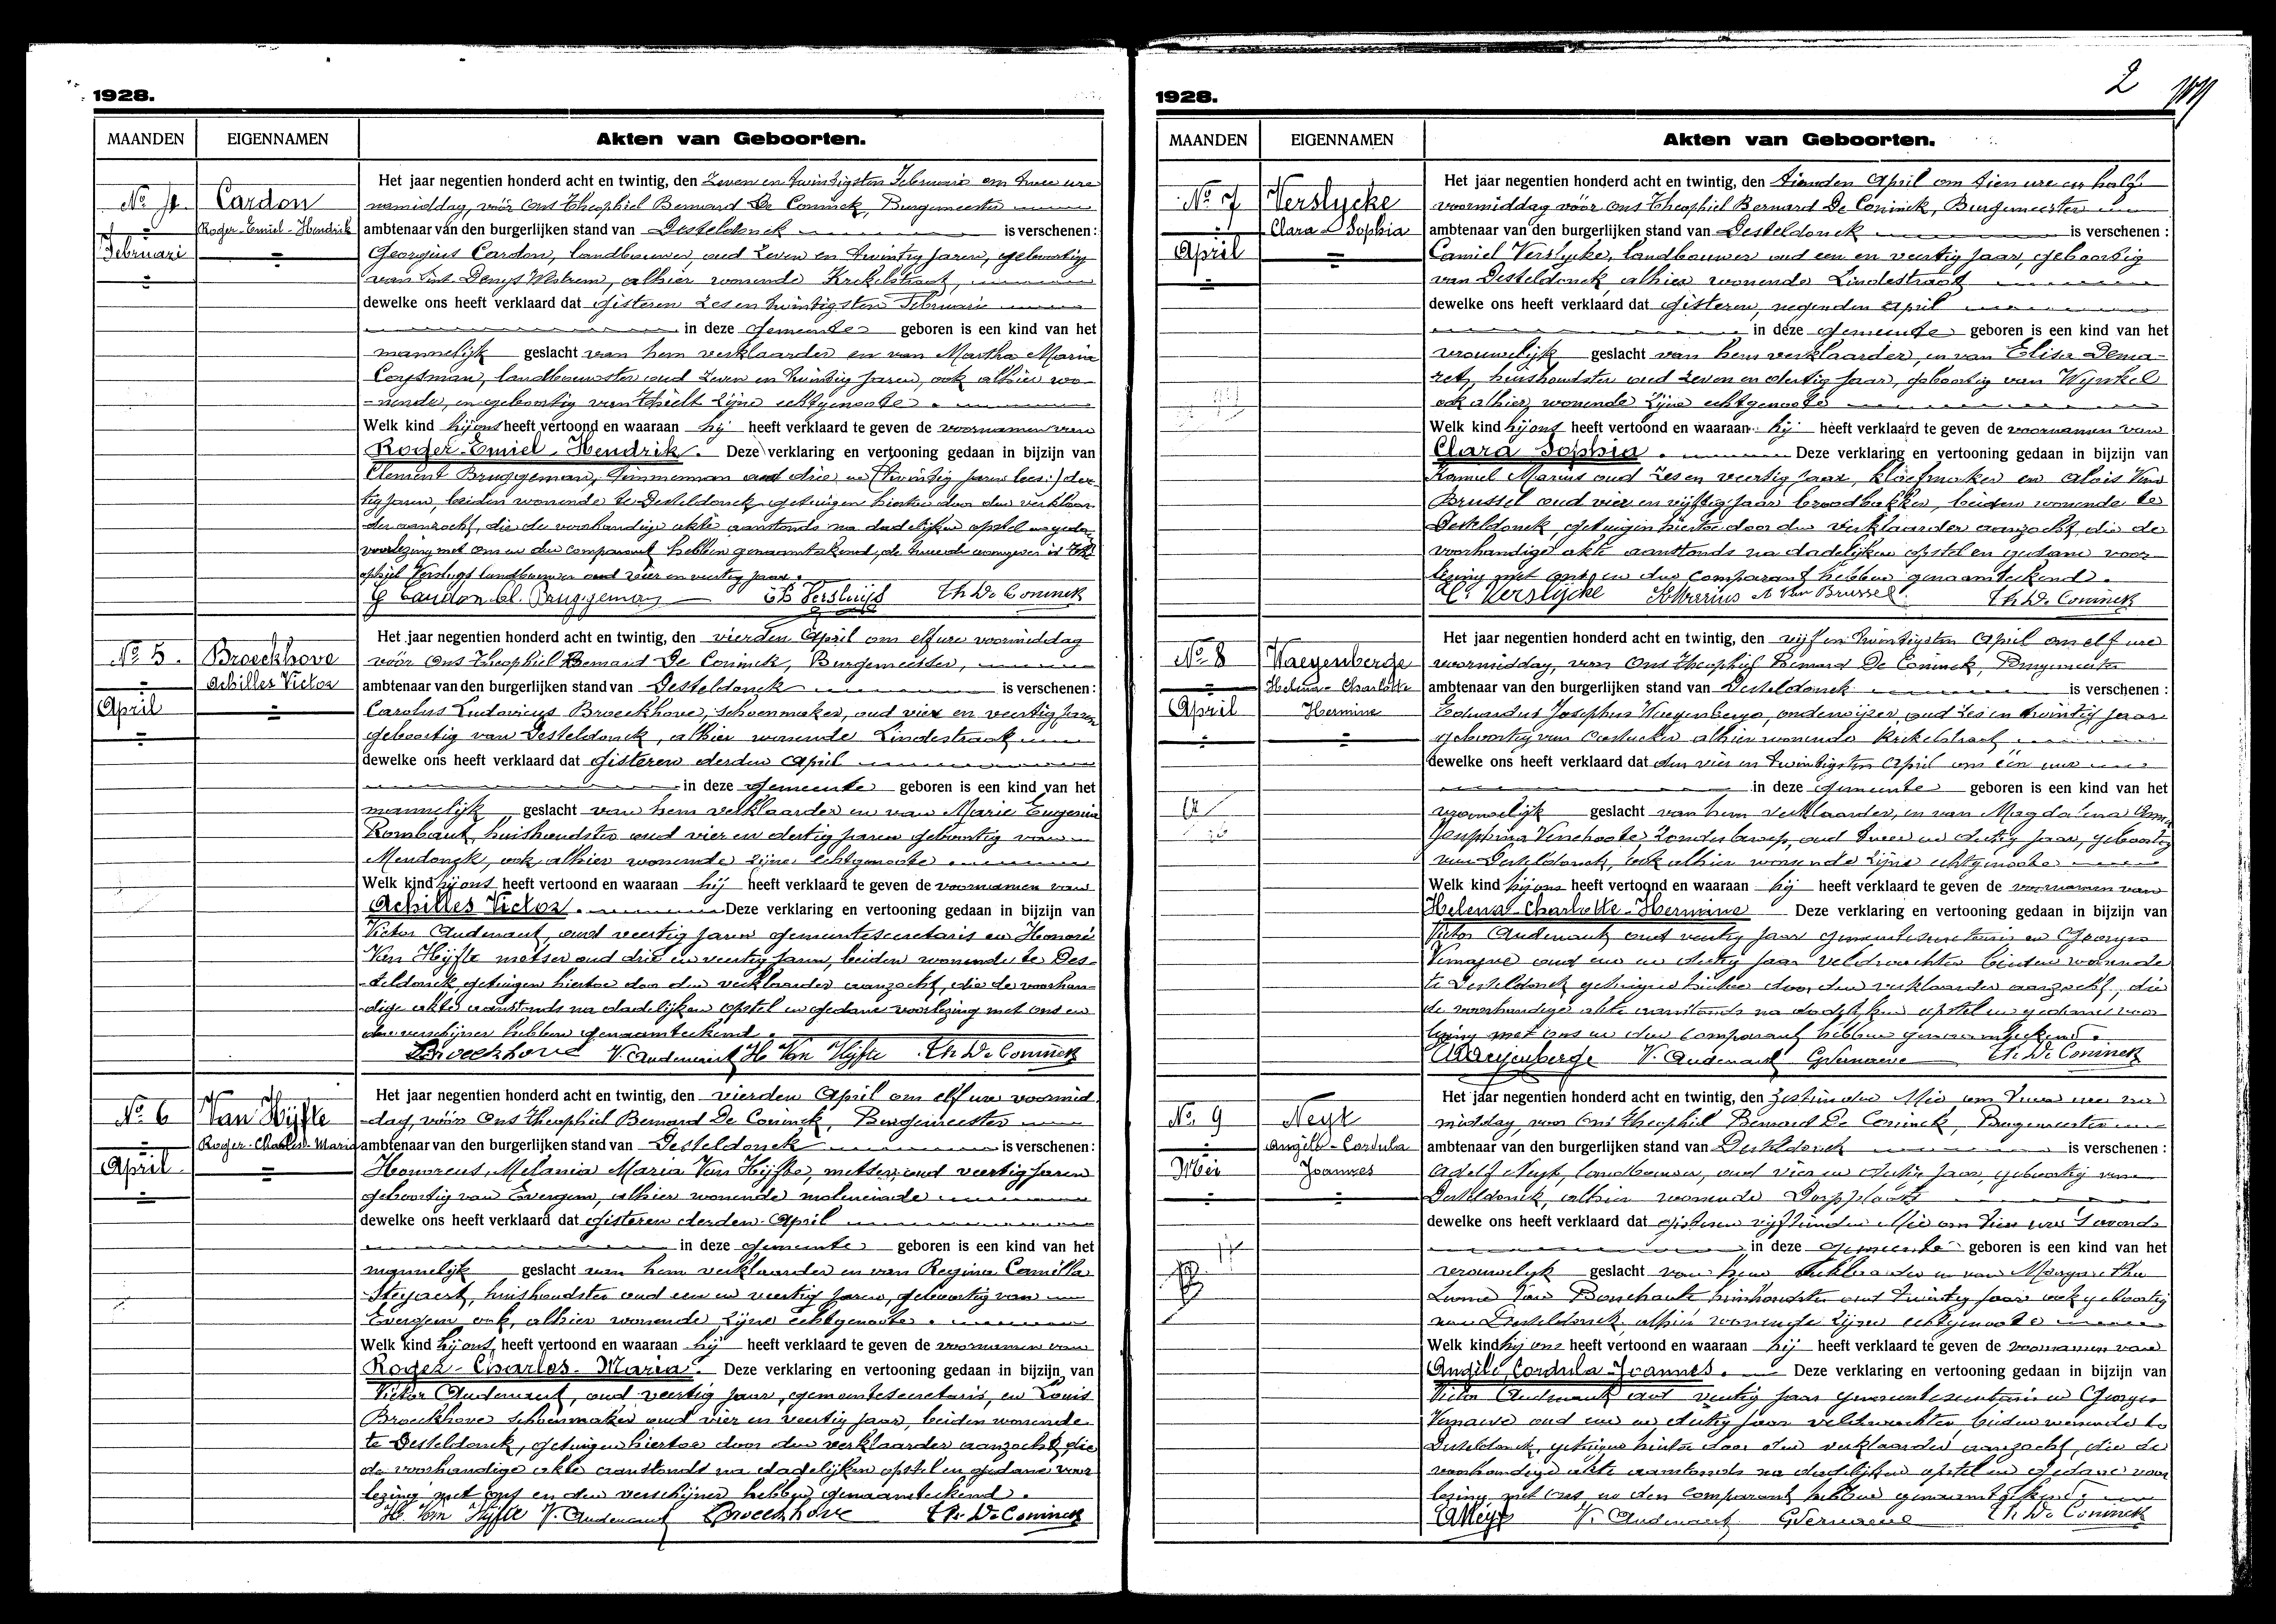 1928.
MAANDEN EIGENNAMEN Akten van Geboorten.
Het jaar negentien honderd acht en twintig, den Zeven en twintigsten Februari om twee ure
No 4. Cardon namiddag, vóór Ons Theophiel Bernard De Coninck, Burgemeester
Roger-Emiel-Hendrik ambtenaar van den burgerlijken stand van Desteldonck is verschenen:
Februari Georgius Cardon, landbouwer, oud zeven en twintig jaren, geboortig
van Sint Denys Westrem, alhier wonende Krekelstraat,
dewelke ons heeft verklaard dat gisteren zes en twintigsten Februari
in deze gemeente geboren is een kind van het
mannelijk geslacht van hem verklaarder en van Martha Maria
landbouwster oud zeven en twintig jaren, ook alhier wo-
-nende, en geboortig van Thielt zijne echtgenoote.
Welk kind hij ons heeft vertoond en waaraan hij heeft verklaard te geven de voornamen van
Roger-Emiel-Hendrik. Deze verklaring en vertooning gedaan in bijzijn van
Clement Bruggeman, Timmerman oud drie en (twintig jaren lees:) der-
tig jaren, beiden wonende te Desteldonck getuigen hiertoe door den verklaar-
der aanzocht, die de voorhandige akte aanstonds na dadelijken opstel en gedane
voorlezing met Ons en den comparant hebben genaamteekend, de tweede is Th-
ophiel Versluys landbouwer oud vier en veertig jaar.
G Cardon Cl. Bruggeman Th Versluijs Th De Coninck
Het jaar negentien honderd acht en twintig, den vierden April om elf ure voormiddag
No 5. Broeckhove vóór Ons Theophiel Bernard De Coninck, Burgemeester,
Achilles Victor ambtenaar van den burgerlijken stand van Desteldonck is verschenen:
April Carolus Ludovicus Broeckhove, schoenmaker, oud vier en veertig jaren
geboortig van Desteldonck, alhier wonende Lindestraat
dewelke ons heeft verklaard dat gisteren derden April
in deze gemeente geboren is een kind van het
mannelijk geslacht van hem verklaarder en van Marie Eugenia
Rombaut huishoudster oud vier en dertig jaren geboortig van
Mendonck, ook alhier wonende zijne echtgenoote.
Welk kind hij ons heeft vertoond en waaraan hij heeft verklaard te geven de voornamen van
Achilles Victor. Deze verklaring en vertooning gedaan in bijzijn van
Victor Audenaert, oud veertig jaren gemeentesecretaris en Honoré
Van Hijfte metser oud drie en veertig jaren, beiden wonende te Des-
-teldonck, getuigen hiertoe door den verklaarder aanzocht, die de voorhan-
-dige akte aanstonds na dadelijken opstel en gedane voorlezing met ons en
den verschijner hebben genaamteekend.
Broeckhove V. Audenaert H. Van Hijfte Th. De Coninck
Het jaar negentien honderd acht en twintig, den vierden April om elf ure voormid
No 6 Van Hijfte -dag, vóór Ons Theophiel Bernard De Coninck, Burgemeester
Roger-Charles-Maria ambtenaar van den burgerlijken stand van Desteldonck is verschenen:
April Honoreus, Melania Maria Van Hijfte, metser, oud veertig jaren
geboortig van Evergem, alhier wonende moleneinde
dewelke ons heeft verklaard dat gisteren derden April
in deze gemeente geboren is een kind van het
mannelijk geslacht van hem verklaarder en van Regina Camilla
Steyaert, huishoudster oud een en veertig jaren, geboortig van
Evergem ook, alhier wonende zijne echtgenoote.
Welk kind hij ons heeft vertoond en waaraan hij heeft verklaard te geven de voornamen van
Roger-Charles-Maria. Deze verklaring en vertooning gedaan in bijzijn van
Victor Audenaert, oud veertig jaar, gemeentesecretaris, en Louis
Broeckhove schoenmaker oud vier en veertig jaar, beiden wonende
te Desteldonck, getuigen hiertoe door den verklaarder aanzocht, die
de voorhandige akte aanstonds na dadelijken opstel en gedane voor
lezing met ons en den verschijner hebben genaamteekend.
H. Van Hijfte V. Audenaert Broeckhove Th. De Coninck
2
1928.
MAANDEN EIGENNAMEN Akten van Geboorten.
Het jaar negentien honderd acht en twintig, den tienden April om tien ure en half
No 7 Verslycke voormiddag vóór Ons Theophiel Bernard De Coninck, Burgemeester
Clara Sophia ambtenaar van den burgerlijken stand van Desteldonck is verschenen:
April Camiel Verslycke, landbouwer oud een en veertig jaar, geboortig
van Desteldonck, alhier wonende Lindestraat
dewelke ons heeft verklaard dat gisteren, negenden April
in deze gemeente geboren is een kind van het
vrouwelijk geslacht van hem verklaarder, en van Elisa Dema-
ret, huishoudster oud zeven en dertig jaar, geboortig van Wynkel
ook alhier, wonende zijne echtgenoote
Welk kind hij ons heeft vertoond en waaraan hij heeft verklaard te geven de voornamen van
Clara Sophia. Deze verklaring en vertooning gedaan in bijzijn van
Kamiel Marius oud zes en veertig jaar, kloefmaker en Alois Van
Brussel oud vier en vijftig jaar broodbakker, beiden wonende te
Desteldonck, getuigen hiertoe door den verklaarder aanzocht, die de
voorhandige akte aanstonds na dadelijken opstel en gedane voor
lezing met ons en den comparant hebben genaamteekend.
C. Verslycke K Marius A Van Brussel Th. De Coninck
Het jaar negentien honderd acht en twintig, den vijf en twintigsten April om elf ure
No 8 Waeyenberge voormiddag, voor Ons Theophiel Bernard De Coninck, Burgemeester
Helena Charlotte ambtenaar van den burgerlijken stand van Desteldonck is verschenen:
April Hermine Eduardus Josephus Waeyenberge, onderwijzer, oud zes en twintig jaar
geboortig van Oostacker alhier wonende Krekelstraat
dewelke ons heeft verklaard dat den vier en twintigsten April om één ure
in deze gemeente geboren is een kind van het
vrouwelijk geslacht van hem verklaarder, en van Magdalena Anna
Josephina zonder beroep, oud twee en dertig jaar, geboortig
van Desteldonck, ook alhier wonende zijne echtgenoote
Welk kind hij ons heeft vertoond en waaraan hij heeft verklaard te geven de voornamen van
Helena-Charlotte-Hermine Deze verklaring en vertooning gedaan in bijzijn van
Victor Audenaert oud veertig jaar gemeentesecretaris en Georges
Vernaeve oud een en dertig jaar veldwachter beiden wonende
te Desteldonck getuigen hiertoe door den verklaarder aanzocht, die
de voorhandige akte aanstonds na dadelijken opstel en gedane voor
lezing met ons en den comparant hebben genaamteekend.
Waeyenberge V. Audenaert GVernaeve Th. De Coninck
Het jaar negentien honderd acht en twintig, den zestienden Mei om twee ure na
No 9 Neyt middag, voor Ons Theophiel Bernard De Coninck, Burgemeester
Angèle-Cordula ambtenaar van den burgerlijken stand van Desteldonck is verschenen:
Mei Joannes Adolf Neyt, landbouwer, oud vier en dertig jaar, geboortig van
Desteldonck, alhier wonende Dorpplaats
dewelke ons heeft verklaard dat gisteren vijftienden Mei om tien ure 's avonds
in deze gemeente geboren is een kind van het
vrouwelijk geslacht van hem verklaarder en van Margaretha
Van Bouchaute huishoudster oud twintig jaar ook geboortig
van Desteldonck alhier wonende zijne echtgenoote
Welk kind hij ons heeft vertoond en waaraan hij heeft verklaard te geven de voornamen van
Angèle, Cordula Joannes. Deze verklaring en vertooning gedaan in bijzijn van
Victor Audenaert oud veertig jaar gemeentesecretaris en Georges
Vernaeve oud een en dertig jaar veldwachter, beiden wonende te
Desteldonck, getuigen hiertoe door den verklaarder aanzocht, die de
voorhandige akte aanstonds na dadelijken opstel en gedane voor
lezing met ons en den comparant hebben genaamteekend.
A Neyt V. Audenaert GVernaeve Th. De Coninck